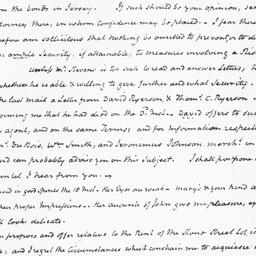 on the bonds in Jersey. If such should be your opinion, se
torney there, in whom confidence may be placed - I fear ther
refer an solicitous that nothing be omitted to prevent or to d
ample Security, if attainable, to measures involving a
unless Mr. Stevens is too sick to read and answer Letters,
whether he is able & willing to give further and what Security.
the last mail a Letter from David Ryerson, & Thos. C. Ryerson
ming me that he had died on the inst. David offers to su
agent, and on the same Terms; and for information respect
Mr. DuBois, Wm. Smith, and Jeronimus Johnson merch. in
and can probably advise you on this Subject. I shall postpone
ncil I hear from you.
and in good spirits the 18 inst. Her Eyes are weak
their proper Impressions. Her accounts of John give me pleasure,
look delicate.
propose and offer relative to the Rent of the Stone Street Lot is
and I regret the Circumstances which constrain me to acquiesce